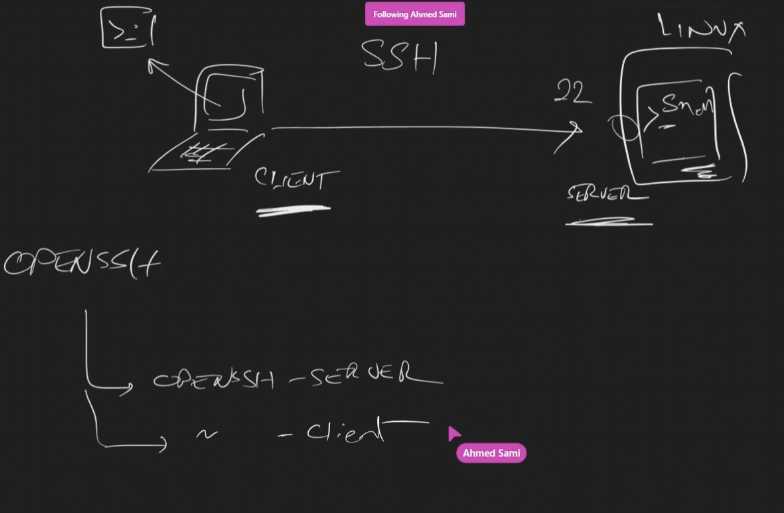 Following Ahmed Sami
LINUX
SSH
>_
22
CLIENT
SERVER
OPENSSH
OPENSSH - SERVER
~ - Client
Ahmed Sami